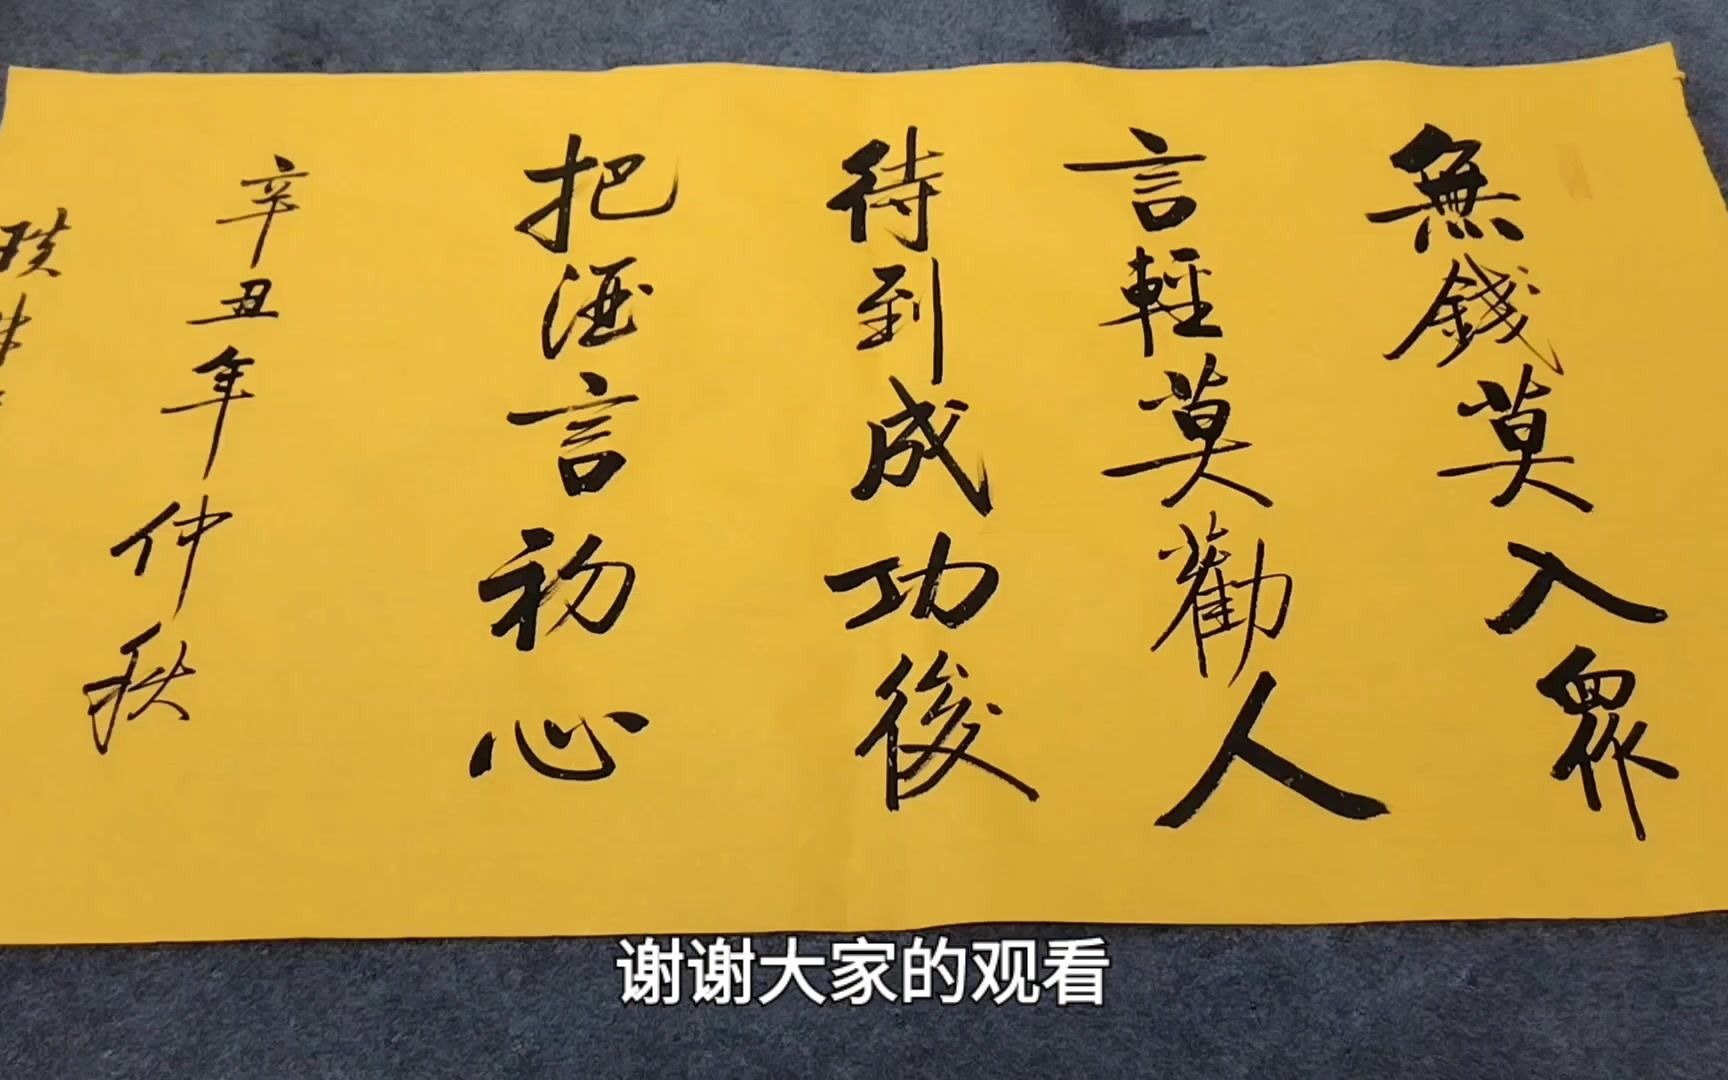 無錢莫入眾
言輕莫勸人
待到成功後
把酒言初心
辛丑年仲秋
谢谢大家的观看